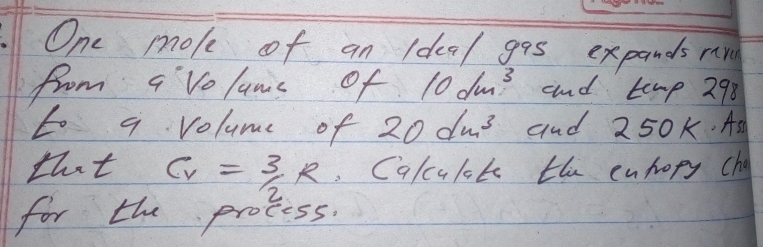 One mole of an Ideal gas expands
from a Volume of 10 dm³ and temp 298
to a volume of 20 dm³ and 250K.
that Cv = 3/2 R. Calculate the entropy
for the process.